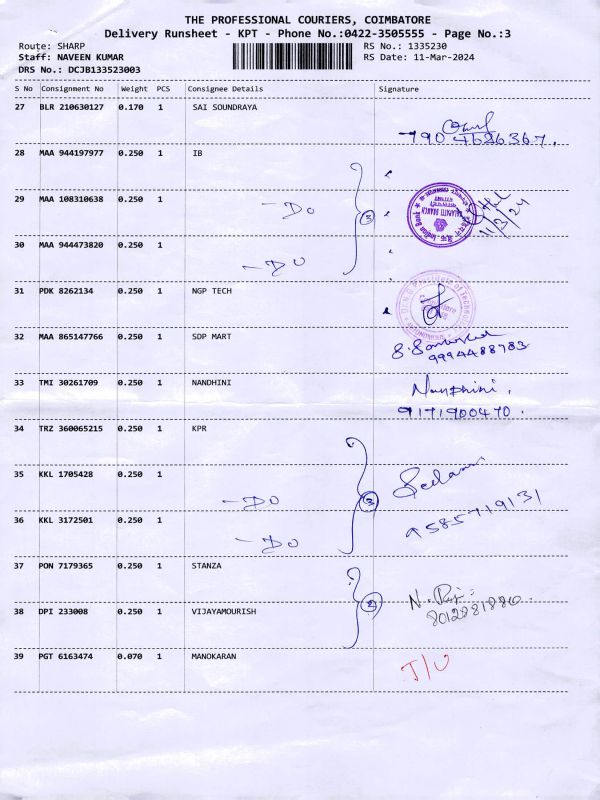 THE PROFESSIONAL COURIERS, COIMBATORE
Delivery Runsheet - KPT - Phone No.:0422-3505555 - Page No.:3
Route: SHARP
RS No.: 1335230
Staff: NAVEEN KUMAR
RS Date: 11-Mar-2024
DRS No.: DCJB133523003
S No Consignment No Weight PCS Consignee Details Signature
27 BLR 210630127 0.170 1 SAI SOUNDRAYA
790 4626367.
28 MAA 944197977 0.250 1 IB
29 MAA 108310638 0.250 1
- Do
3
Indian Bank
KALAPATTI BRANCH
11/3/24
30 MAA 944473820 0.250 1
- Do
31 PDK 8262134 0.250 1 NGP TECH
32 MAA 865147766 0.250 1 SDP MART
9994488983
33 TMI 30261709 0.250 1 NANDHINI
Nandhini.
9171900470.
34 TRZ 360065215 0.250 1 KPR
35 KKL 1705428 0.250 1
- Do
3
9585719131
36 KKL 3172501 0.250 1
- Do
37 PON 7179365 0.250 1 STANZA
2
N. Raj:
8012881880.
38 DPI 233008 0.250 1 VIJAYAMOURISH
39 PGT 6163474 0.070 1 MANOKARAN